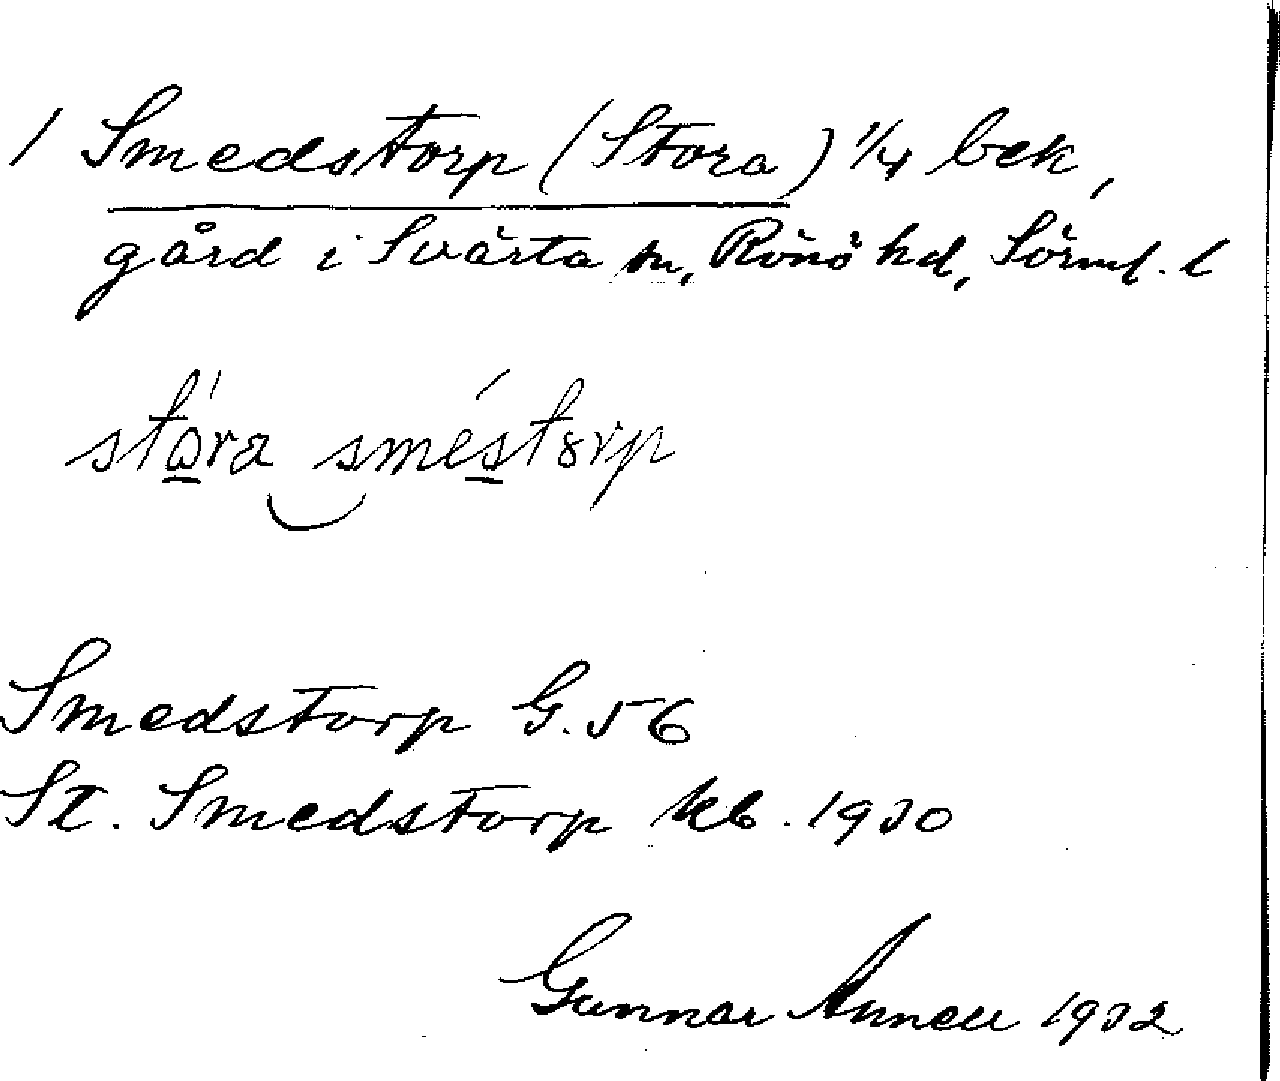 1 Smedstorp (Stora) 1/4 bek,
gård i Svärta sn, Rönö hd, Sörml. l
stóra sméstorp
Smedstorp G. 56
St. Smedstorp kb. 1930
Gunnar Annell 1932